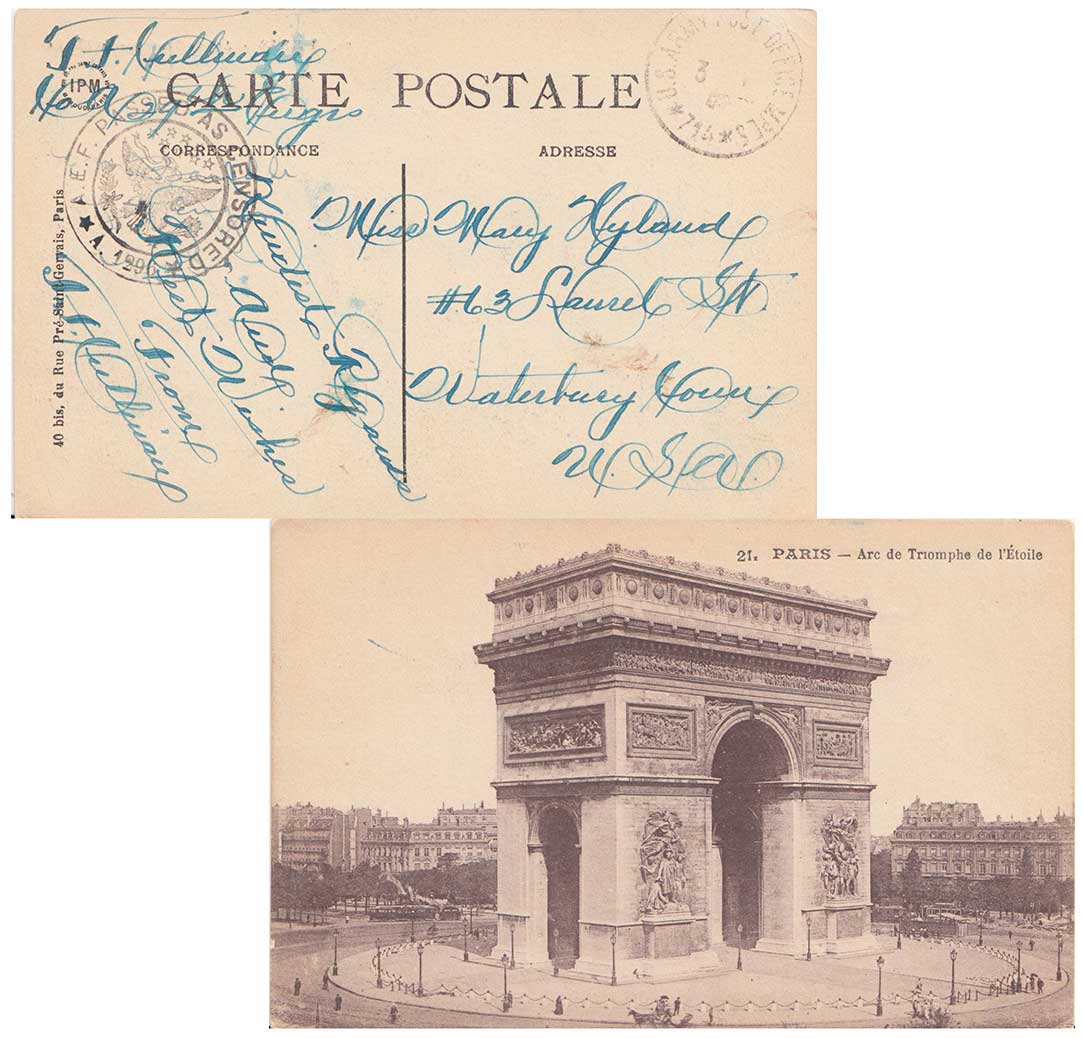 T. F. Cullinan
IPM
CARTE POSTALE
Co. 29th Engrs
U.S. ARMY POST OFFICE M.P.E.S. 714
CORRESPONDANCE
ADRESSE
A.E.F. PASSED AS CENSORED
A. 1290
40 bis, du Rue Pré-Saint-Gervais, Paris
Kindest Regards
And
Best Wishes
From
Miss Mary Hyland
#63 Laurel St.
Waterbury Conn.
U.S.A.
21. PARIS — Arc de Triomphe de l'Étoile